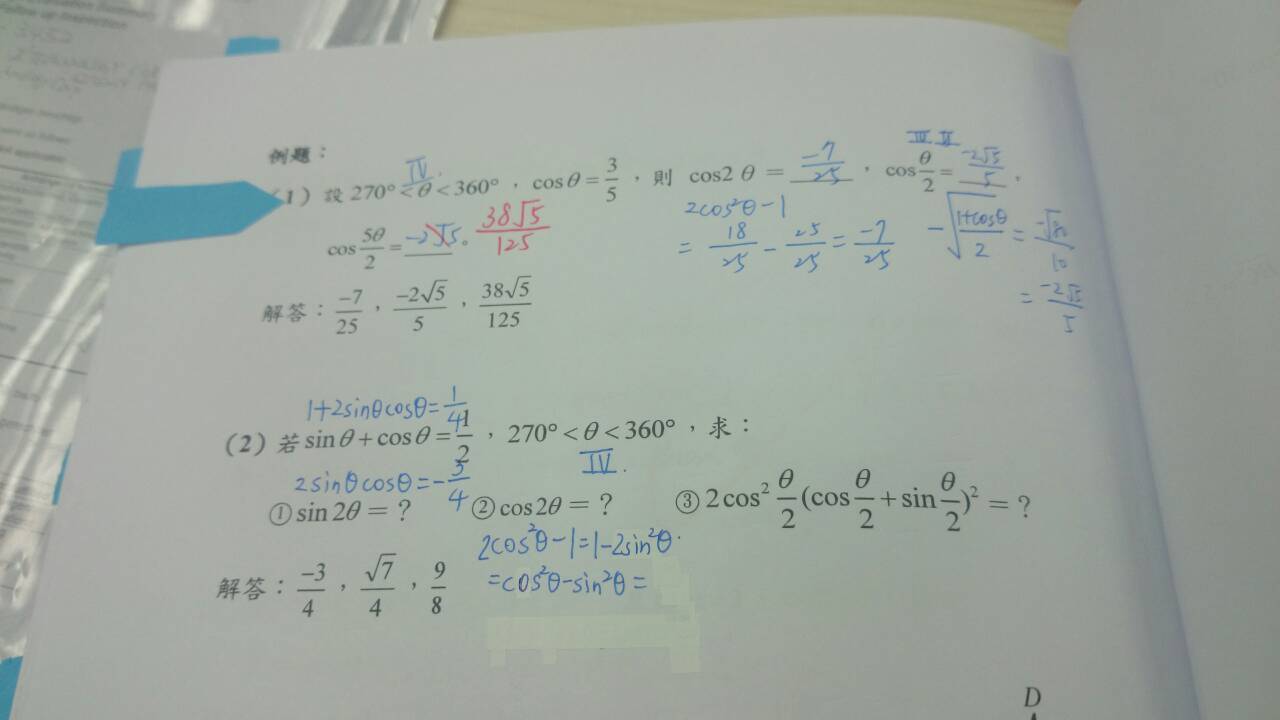 例題：
IV IV II
（1）設 270° < θ < 360°，cosθ = 3/5，則 cos2θ = -7/25，cos θ/2 = -2√5/5，
IV
2cos²θ-1
= 18/25 - 25/25 = -7/25
-√((1+cosθ)/2) = -√80/10
= -2√5/5
cos 5θ/2 = -2√5。 38√5/125
解答：-7/25，-2√5/5，38√5/125
1+2sinθcosθ = 1/4
（2）若 sinθ + cosθ = 1/2，270° < θ < 360°，求：
IV.
2sinθcosθ = -3/4
①sin 2θ = ? ②cos2θ = ? ③2cos² θ/2 (cos θ/2 + sin θ/2)² = ?
2cos²θ-1 = 1-2sin²θ.
= cos²θ-sin²θ =
解答：-3/4，√7/4，9/8
D